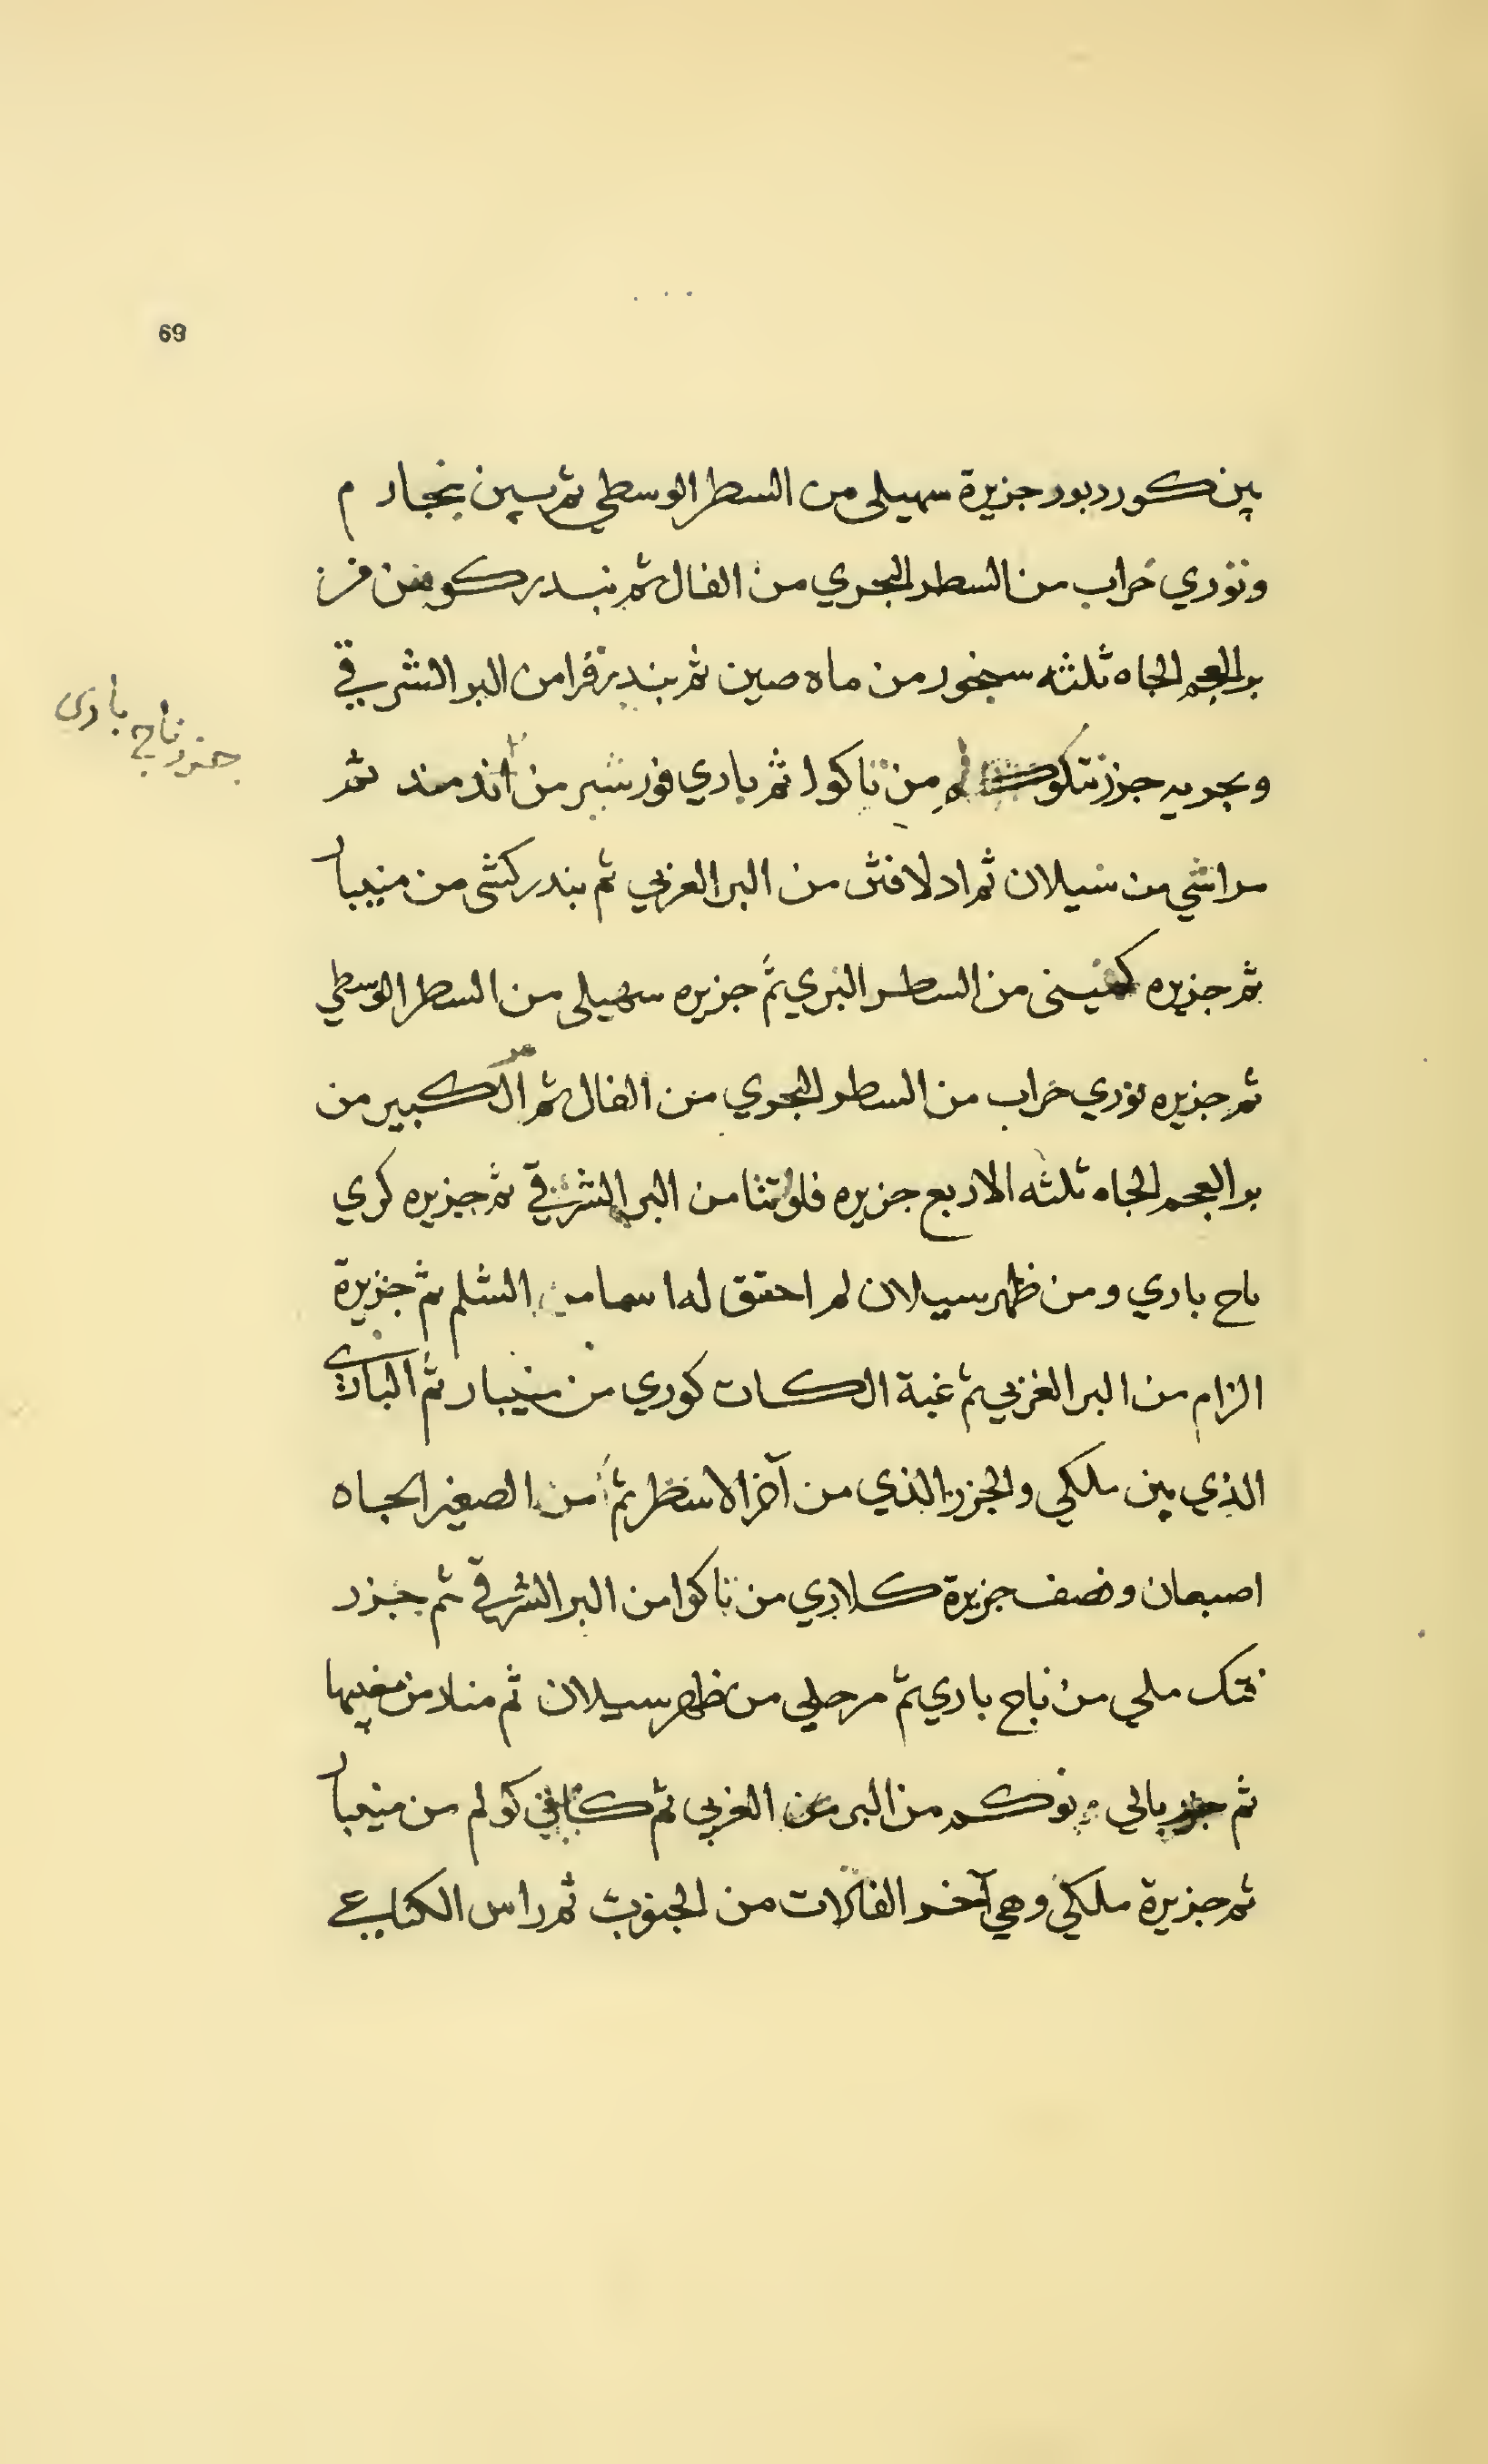 69
بين كوردبور جزيرة سهيلى من السطر الوسطي ثم بين بنجارم
وتوري خراب من السطر البحري من الفال ثم بندر كوبنن من
بر العجم الجاه ثلثه سنجور من ماه صين ثم بندر قرا من البر الشرقي
وبحريه جزر تتكو من ناكوا ثم باري فورشير من اندمند ثم
جزر ناج بارى
مراشي من سيلان ثم ادلافتن من البر الغربي ثم بندر كشى من منيبار
ثم جزيره كفينى من السطر البري ثم جزيره سهيلى من السطر الوسطي
ثم جزيره توري خراب من السطر البحري من الفال ثم الكبير من
بر العجم الجاه ثلثه الا ربع جزيره فلو تتنا من البر الشرقي ثم جزيره كري
ناج باري ومن ظهر سيلان لم احقق لها سما من الشلم ثم جزيرة
الزام من البر الغربي ثم غبة الكات كوري من منيبار ثم الباري
الذي بين ملكي والجزر الذي من آخر الاسطر ثم من الصغير الجاه
اصبعان ونصف جزيرة كلاري من ناكوا من البر الشرقي ثم جزر
فتك ملي من ناج باري ثم مرحلي من ظهر سيلان ثم منلا من مغيبها
ثم جزر بالي نوكم من البر الغربي ثم كافي كولم من منيبار
ثم جزيرة ملكي وهي آخر الفالات من الجنوب ثم راس الكنايع